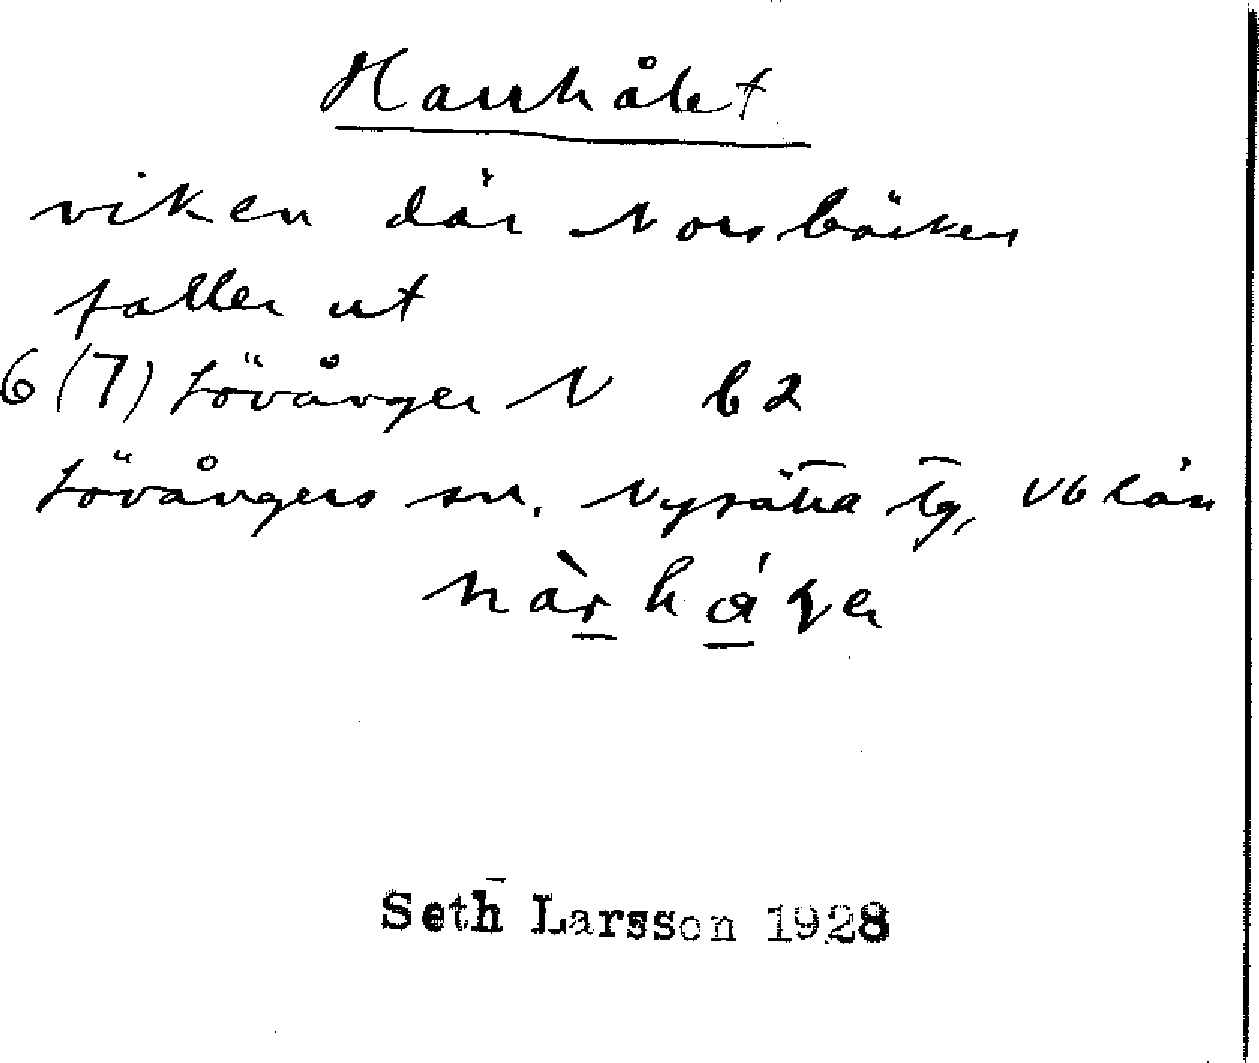 Harrhålet
viken där Norsbäcken
faller ut
6 (7) Lövånger N b 2
Lövångers sn. Nysätra tg, Vb län
Seth Larsson 1928